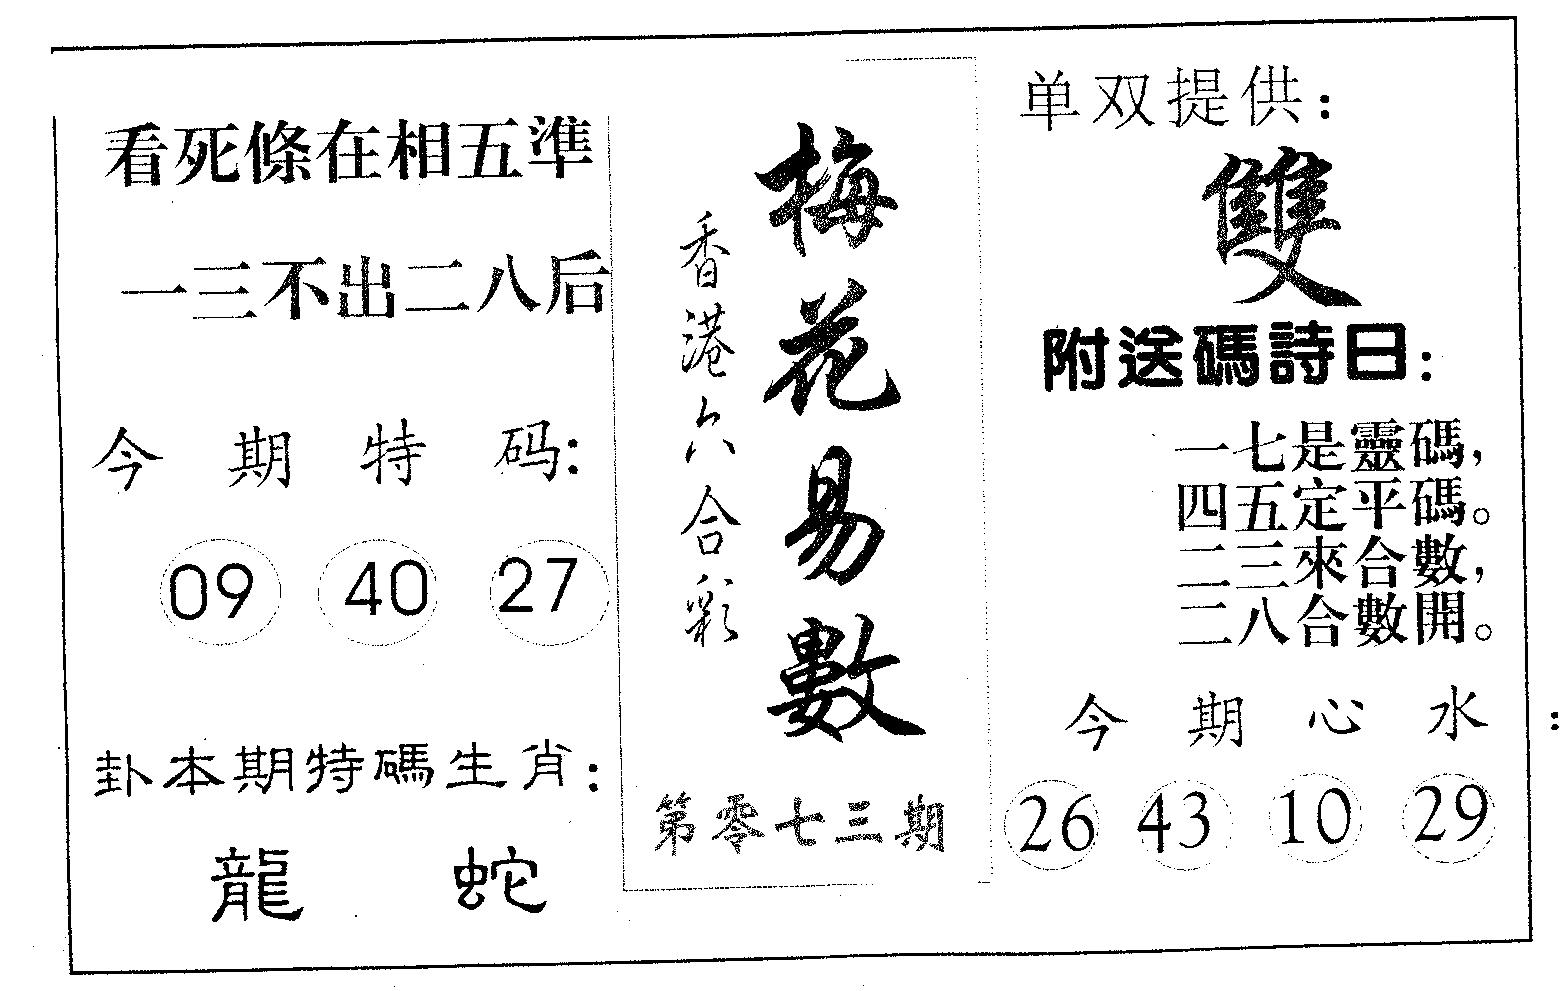 看死條在相五準
一三不出二八后
今期特码:
09 40 27
卦本期特碼生肖:
龍 蛇
梅花易數
香港六合彩
第零七三期
单双提供:
雙
附送碼詩曰:
一七是靈碼,
四五定平碼。
二三來合數,
二八合數開。
今期心水:
26 43 10 29